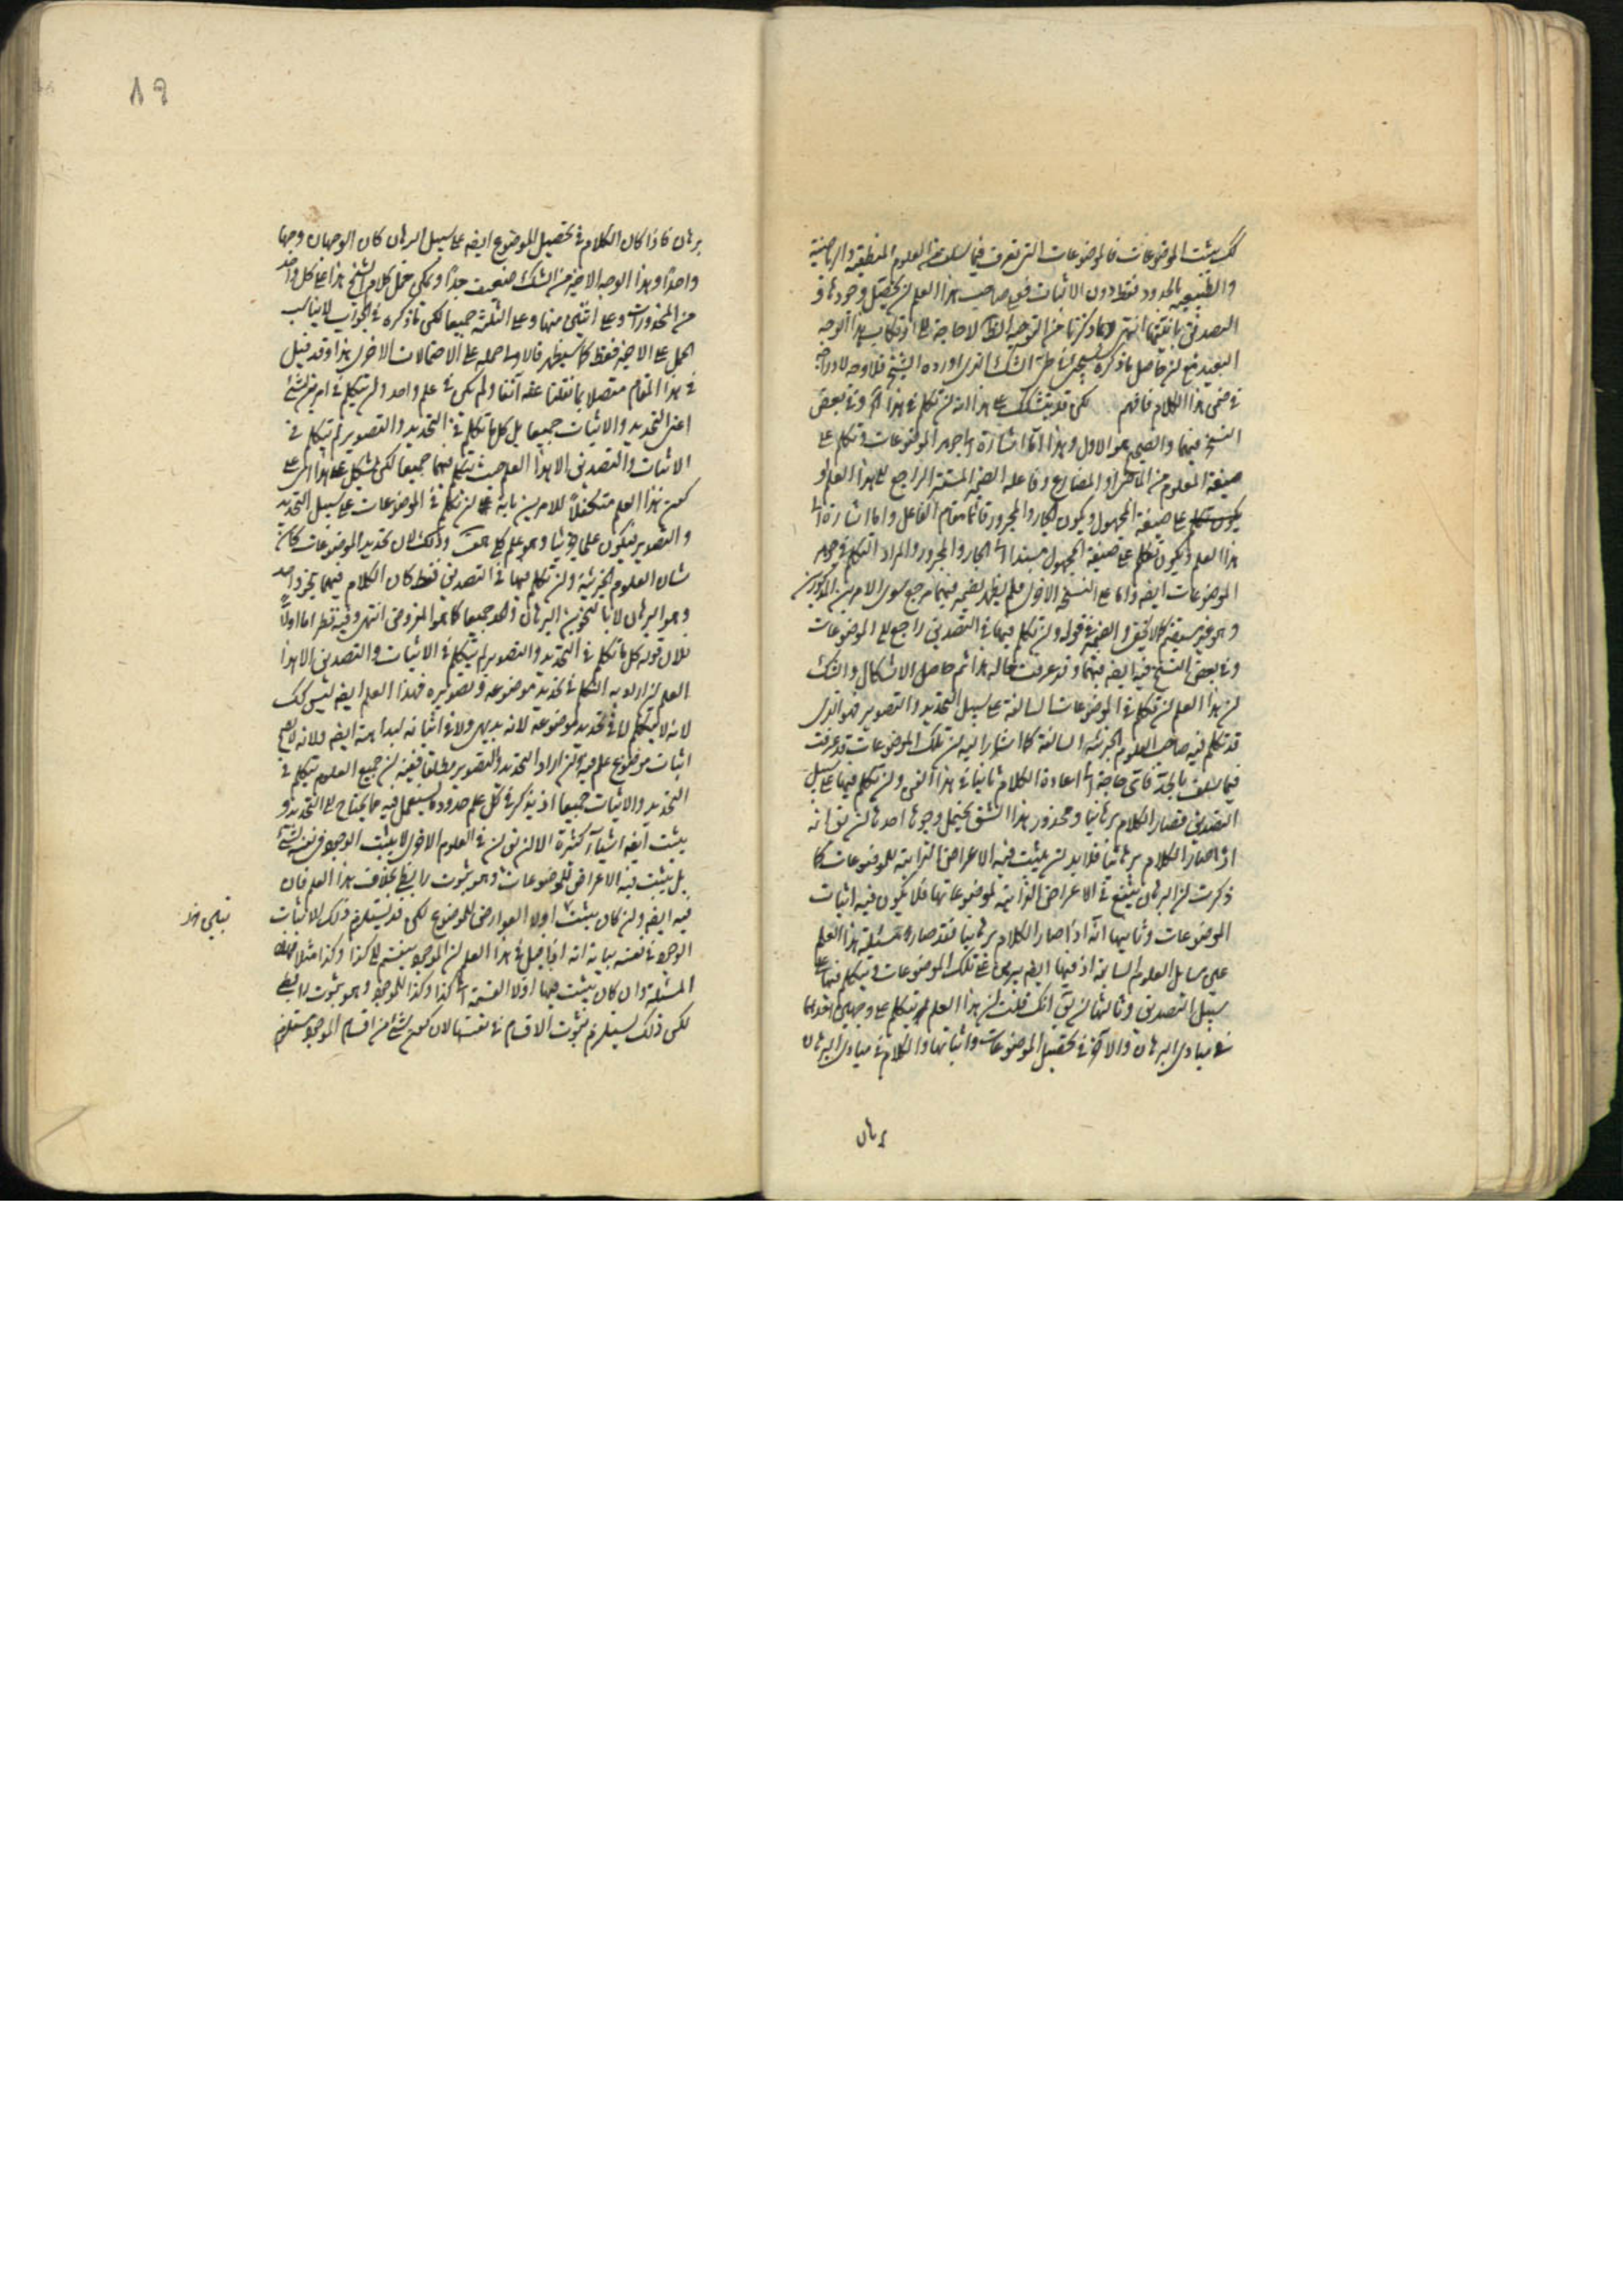 لك يثبت الموضوعات فالموضوعات التى تعرف فيما سلف من العلوم المنطقية والرياضية
والطبيعية بالحدود فقط دون الاثبات فعلى صاحب هذا العلم ان يحصل وجودها و
التصديق بانيتها انتهى وما ذكرنا من التوجيه الظ لا حاجة الى ارتكاب هذا الوجه
البعيد مع ان حاصل ما ذكره الشك الذى اورده الشيخ فلا وجه لادراجه
فى ضمن هذا الكلام فافهم لكن قد يتشكك على هذا انه ان تكلم فى هذا آه وفى بعض
النسخ فيهما والصحيح هو الاول وهذا اما اشارة الى جوهر الموضوعات وتكلم على
صيغة المعلوم من الماضى او المضارع وفاعله الضمير المستتر الراجع الى هذا العلم او
يكون تكلم على صيغة المجهول ويكون الجار والمجرور قائما مقام الفاعل واما اشارة الى
هذا العلم ويكون تكلم على صيغة المجهول مسندا الى الجار والمجرور والمراد التكلم فى جوهر
الموضوعات ايضا واما على النسخ الاخرى فلم يظهر لضمير فيهما مرجع سوى الامرين المذكورين
وهو غير مستقيم كما لا يخفى والضمير فى قوله وان تكلم فيها فى التصديق راجع الى الموضوعات
وفى بعض النسخ فيه ايضا فيهما وقد عرفت حاله هذا ثم حاصل الاشكال والشك
ان هذا العلم ان تكلم فى الموضوعات السالفة على سبيل التحديد والتصوير فهو الذى
قد تكلم فيه صاحب العلوم الجزئية السالفة كما اشار اليه ان تلك الموضوعات قد عرفت
فيما سلف بالحد فاى حاجة الى اعادة الكلام ثانيا فى هذا الفن وان تكلم فيها على سبيل
التصديق فصار الكلام برهانيا ومحذور هذا الشق يحتمل وجوها احدها ان يق انه
اذا صار الكلام برهانيا فلا بد ان يثبت فيه الاعراض الذاتية للموضوعات كما
ذكرت ان البرهان يتبع فى الاعراض الذاتية لموضوعاتها فلا يكون فيه اثبات
الموضوعات وثانيها انه اذا صار الكلام برهانيا فقد صار مسئلة هذا العلم
على مسائل العلوم السابقة اذ فيها ايضا يبرهن على تلك الموضوعات ويتكلم فيها على
سبيل التصديق وثالثها ان يق انك قلت ان هذا العلم يتكلم على وجهين احدهما
فى مبادى البرهان والآخر فى تحصيل الموضوعات واثباتها والكلام فى مبادى البرهان
برهان
٨٩
برهان فاذا كان الكلام فى تحصيل الموضوع ايضا على سبيل البرهان كان الوجهان وجها
واحدا وهذا الوجه الاخير من الشك ضعيف جدا ويمكن حمل كلام الشيخ هذا على كل واحد
من المحذورات وعلى اثنين منها وعلى الثلثة جميعا لكن ما ذكره فى الجواب لا يناسب
الحمل على الاخير فقط كما سيظهر فالاولى حمله على الاحتمالات الاخرى هذا وقد قيل
فى هذا المقام متصلا بما نقلنا عنه آنفا ولم يكن فى علم واحد ان يتكلم فى امرين لشئ
اعنى التحديد والاثبات جميعا بل كل ما تكلم فى التحديد والتصوير لم يتكلم فى
الاثبات والتصديق الا هذا العلم حيث يتكلم فيهما جميعا لكن يشكل على هذا الامر على
كون هذا العلم متكفلا للامرين بانه ان تكلم فى الموضوعات على سبيل التحديد
والتصوير فيكون علما جزئيا وهو علم كلى هف وذلك لان تحديد الموضوعات كان
شان العلوم الجزئية وان تكلم فيها فى التصديق فقط كان الكلام فيهما بنحو واحد
وهو البرهان لا بالنحوين البرهان والحد جميعا كما هو المفروض انتهى وفيه نظر اما اولا
فلان قوله كل ما تكلم فى التحديد والتصوير لم يتكلم فى الاثبات والتصديق الا هذا
العلم ان اراد به التكلم فى تحديد موضوعه وتصويره فهذا العلم ايضا ليس كك
لانه لا يتكلم لا فى تحديد موضوعه لانه بديهى ولا فى اثباته لبداهته ايضا ولانه لا يصح
اثبات موضوع علم فيه وان اراد التحديد والتصوير مطلقا ففيه ان جميع العلوم يتكلم فى
التحديد والاثبات جميعا اذ يذكر فى كل علم حدود ما يستعمل فيه مما يحتاج الى التحديد و
يثبت فيه اشياء كثيرة الا ان يق ان فى العلوم الاخرى لا يثبت الوجود فى نفسه لشئ
بل يثبت فيه الاعراض للموضوعات وهو ثبوت رابطى بخلاف هذا العلم فان
فيه ايضا وان كان يثبت اولا العوارض للموضوع لكن قد يستلزم ذلك الاثبات
الوجود فى نفسه بيانه انه اذا قيل فى هذا العلم ان الموجود ينقسم الى كذا وكذا مثلا فهذه
المسئلة وان كان يثبت فيها اولا القسمة الى كذا وكذا للموجود وهو ثبوت رابطى
لكن ذلك يستلزم ثبوت الاقسام فى نفسها لان كون شئ من اقسام الموجود مستلزم